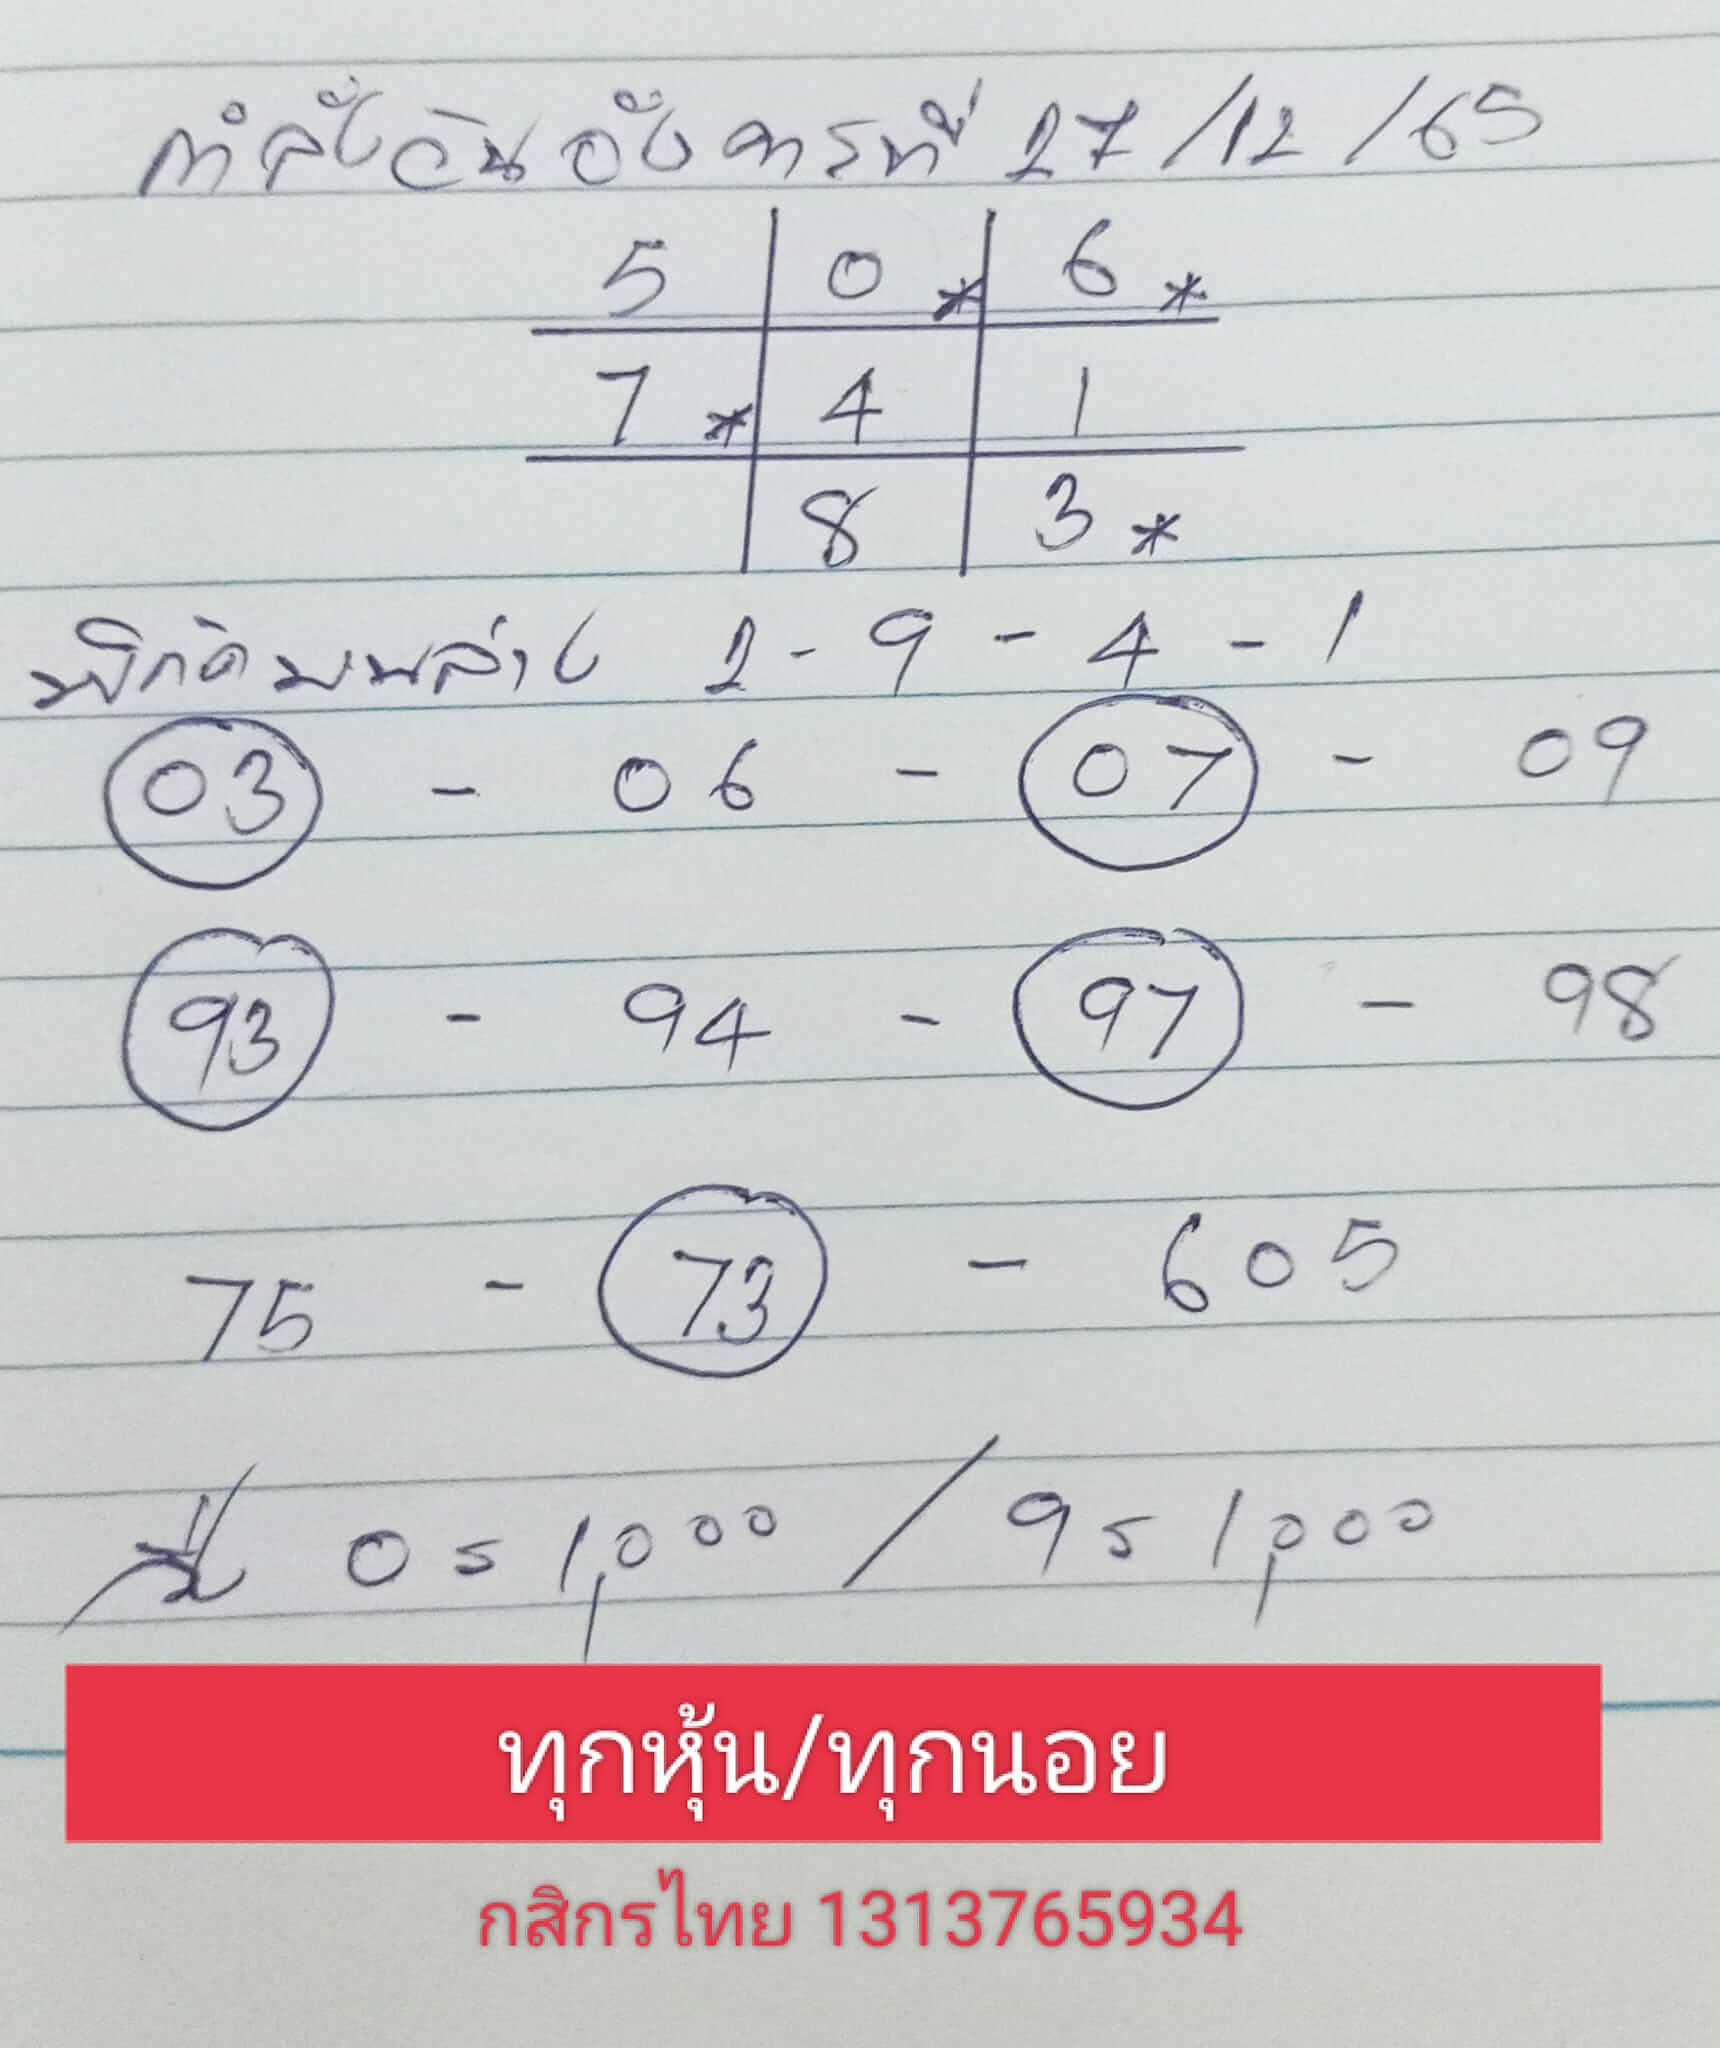 กำลังวันอังคารที่ 27/12/65
5 0* 6*
7* 4 1
8 3*
พิกัดบนล่าง 2-9-4-1
03 - 06 - 07 - 09
93 - 94 - 97 - 98
75 - 73 - 605
0 = 1,000 / 9 = 1,000
ทุกหุ้น/ทุกนอย
กสิกรไทย 1313765934